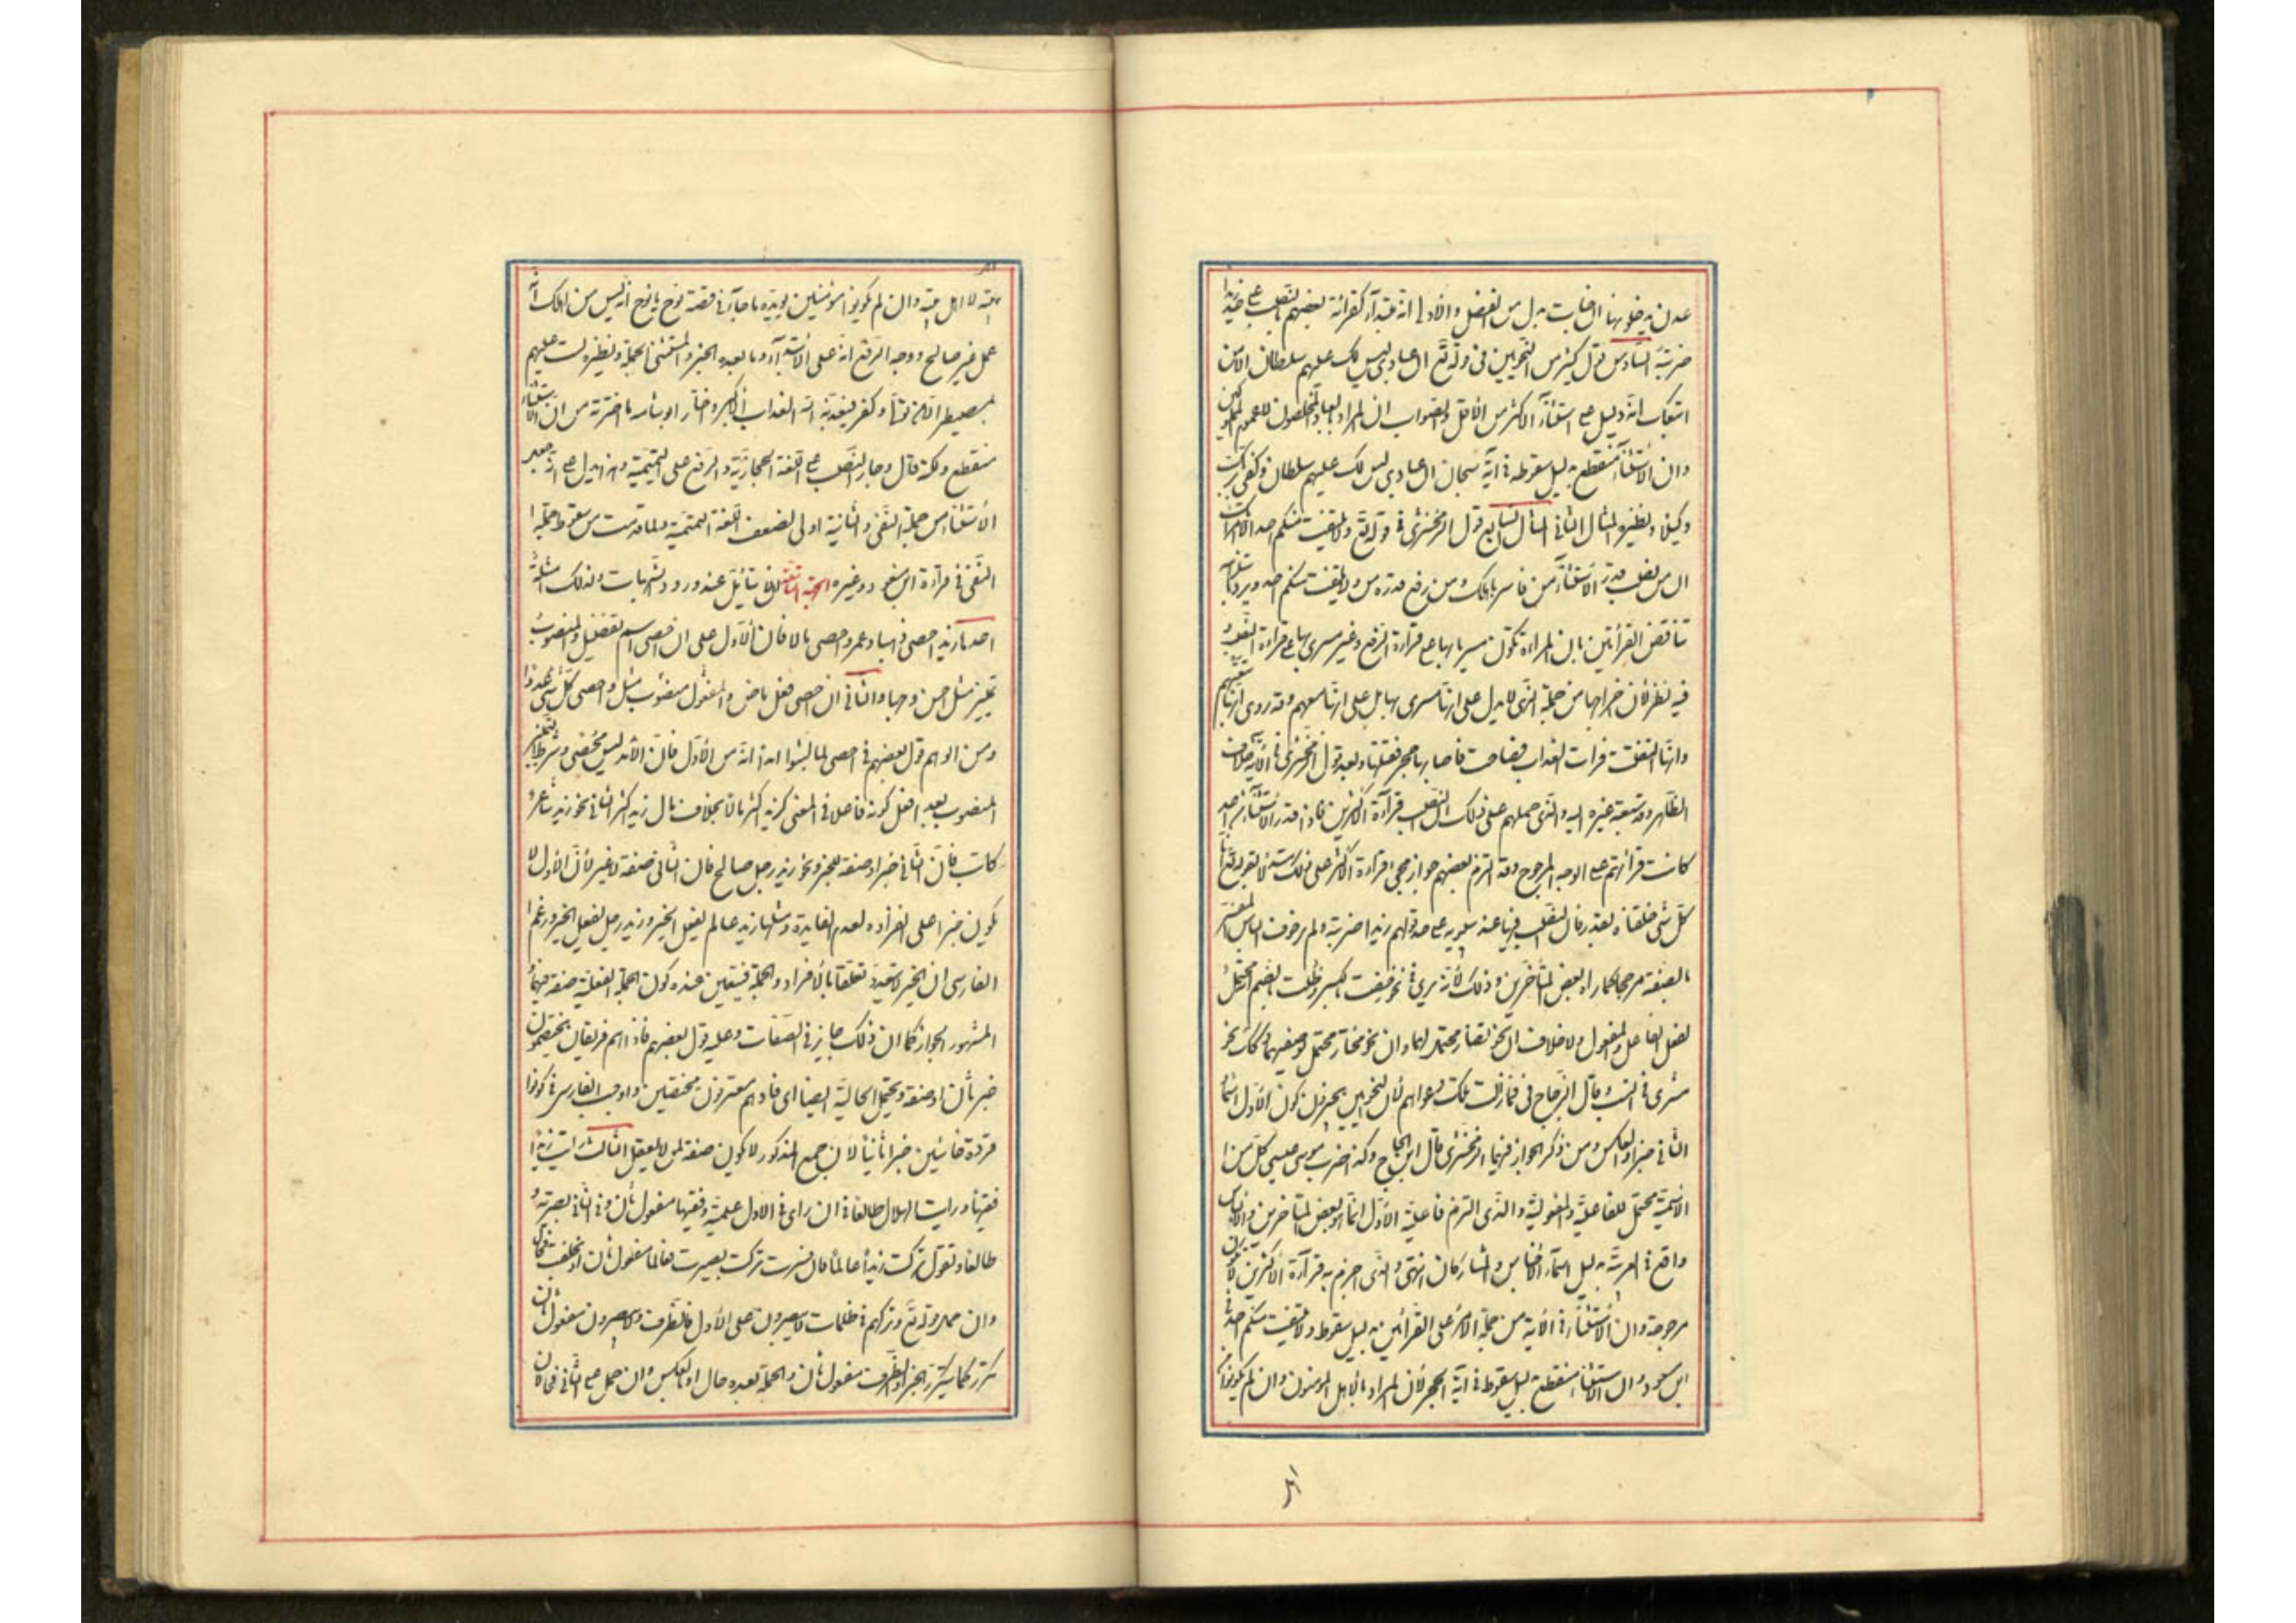 عدن يدخلونها ان جنات بدل من الفضل والأولى انه مبتدأ لقراءة بعضهم بالنصب على حد زيدا
ضربته السادس قول كثير من النحويين في قوله تع ان عبادي ليس لك عليهم سلطان الا من
اتبعك انه دليل على استثناء الاكثر من الأقل والصواب ان المراد بالعباد المخلصون لا عموم المملوكين
وان الاستثناء منقطع بدليل سقوطه في آية سبحان ان عبادي ليس لك عليهم سلطان وكفى بربك
وكيلا ونظيره المثال الثاني المثال السابع قول الزمخشري في قوله تع ولا يلتفت منكم احد الا امراتك
ان من نصب قدر الاستثناء من فاسر باهلك ومن رفع قدره من ولا يلتفت منكم احد ويرد باستلزامه
تناقض القرأتين فان المراءة تكون مسريا بها على قراءة الرفع وغير مسرى بها على قراءة النصب و
فيه نظر لأن اخراجها من جملة النهي لا يدل على انها مسرى بها بل على انها معهم وقد روى انها تبعتهم
وانها التفتت فرات العذاب فصاحت فاصابها حجر فقتلها وبعد قول الزمخشري في الأية خلاف
الظاهر وقد سبقه غيره اليه والذي حملهم على ذلك ان النصب قرآءة الاكثرين فاذا قدر الاستثناء من احد
كانت قرائتهم على الوجه المرجوح وقد التزم بعضهم جواز مجئ قراءة الاكثر على ذلك مستدلا بقوله تع انا
كل شئ خلقناه بقدر فان النصب فيها عند سيبويه على حد قولهم زيدا ضربته ولم ير خوف الباس المفسر
بالصفة مرجحا كما رآه بعض المتأخرين وذلك لأنه يرى في نحو خفت بالكسر وطلت بالضم انه محتمل
لفعل الفاعل والمفعول ولا خلاف ان نحو تضار محتمل لهما وان نحو مختار محتمل لوصفيهما وكذلك نحو
مشترى في النسب وقال الزجاج في فما زالت تلك دعواهم لأن النحويين يجيزون كون الأول اسما
الثاني خبرا والعكس وممن ذكر الجواز فيهما الزمخشري قال ابن الحاج وكذا ضرب موسى عيسى كل من
الاسمين محتمل للفاعلية والمفعولية والذي التزم فاعلية الأول انما هو بعض المتأخرين والالباس
واقع في العربية بدليل اسماء الأجناس والمشتركات انتهى والذي اجزم به قرآءة الاكثرين لا تكون
مرجوحة وان الاستثناء في الأية من جملة الامر على القرأتين بدليل سقوط ولا يلتفت منكم احد في قراءة
ابن مسعود وان الاستثناء منقطع بدليل سقوطه في آية الحجر لأن المراد بالاهل المؤمنون وان لم يكونوا من
اهل
بيته لا اهل بيته وان لم يكونوا مؤمنين ويؤيده ما جآء في قصة نوح يا نوح انه ليس من اهلك انه
عمل غير صالح ووجه الرفع انه على الأبتدآء وما بعده الخبر والمستثنى الجملة ونظيره لست عليهم
بمصيطر الا من تولى وكفر فيعذبه الله العذاب الأكبر واختار ابو شامه ما اخترته من ان الاستثناء
منقطع ولكنه قال وجاء النصب على اللغة الحجازية والرفع على التميمية وهذا يدل على انه جعل
الأستثناء من جملة النهي والثانية اولى لضعف اللغة التميمية ولما قدمت من سقوط جملة
النهي في قرآءة ابن مسعود وغيره الجهة الثامنة ان يتأمل عند ورود المشتبهات ولذلك امثلة
احدها زيد احصى ذهنا وعمرو احصى مالا فان الأول على ان احصى اسم تفضيل والمنصوب
تمييز مثل احسن وجها والثاني ان احصى فعل ماض والمفعول منصوب مثل واحصى كل شئ عددا
ومن الوهم قول بعضهم في احصى لما لبثوا امدا انه من الأول فان الأمد ليس محصيا وشرط التمييز
المنصوب بعد افعل كونه فاعلا في المعنى كزيد اكثر مالا بخلاف مال زيد اكثر الثاني نحو زيد شاعر
كاتب فان الثاني خبر او صفة للخبر ونحو زيد رجل صالح فان الثاني صفة لا غير لأن الأول لا
يكون خبرا على انفراده لعدم الفايدة ومثلهما زيد عالم يفعل الخير وزيد رجل يفعل الخير وزعم
الفارسي ان الخبر لا يتعدد مختلفا بالأفراد والجملة فيتعين عنده كون الجملة الفعلية صفة فيهما و
المشهور الجواز كما ان ذلك جايز في الصفات وعليه قول بعضهم فاذا هم فريقان يختصمون
خبر ثان او صفة ويحتمل الحالية ايضا اى فاذا هم مفترقون مختصمين واوجب الفارسي في كونوا
قردة خاسئين خبرا ثانيا لأن جمع المذكور لا يكون صفة لمن لا يعقل الثالث رأيت زيدا
فقيها ورايت الهلال طالعا فان رأى في الاول علمية وفقيها مفعول ثان وفي الثاني بصرية و
طالعا وتقول تركت زيدا عالما فان فسرت تركت بصيرت فعالما مفعول ثان او بخلفت فحال
وان حمل قوله تع وتركهم في ظلمات لا يبصرون على الأول فالظرف ولا يبصرون مفعول ثان
تكرر كما يتكرر الخبر او الظرف مفعول ثان والجملة بعده حال او بالعكس وان حمل على الثاني فحالان